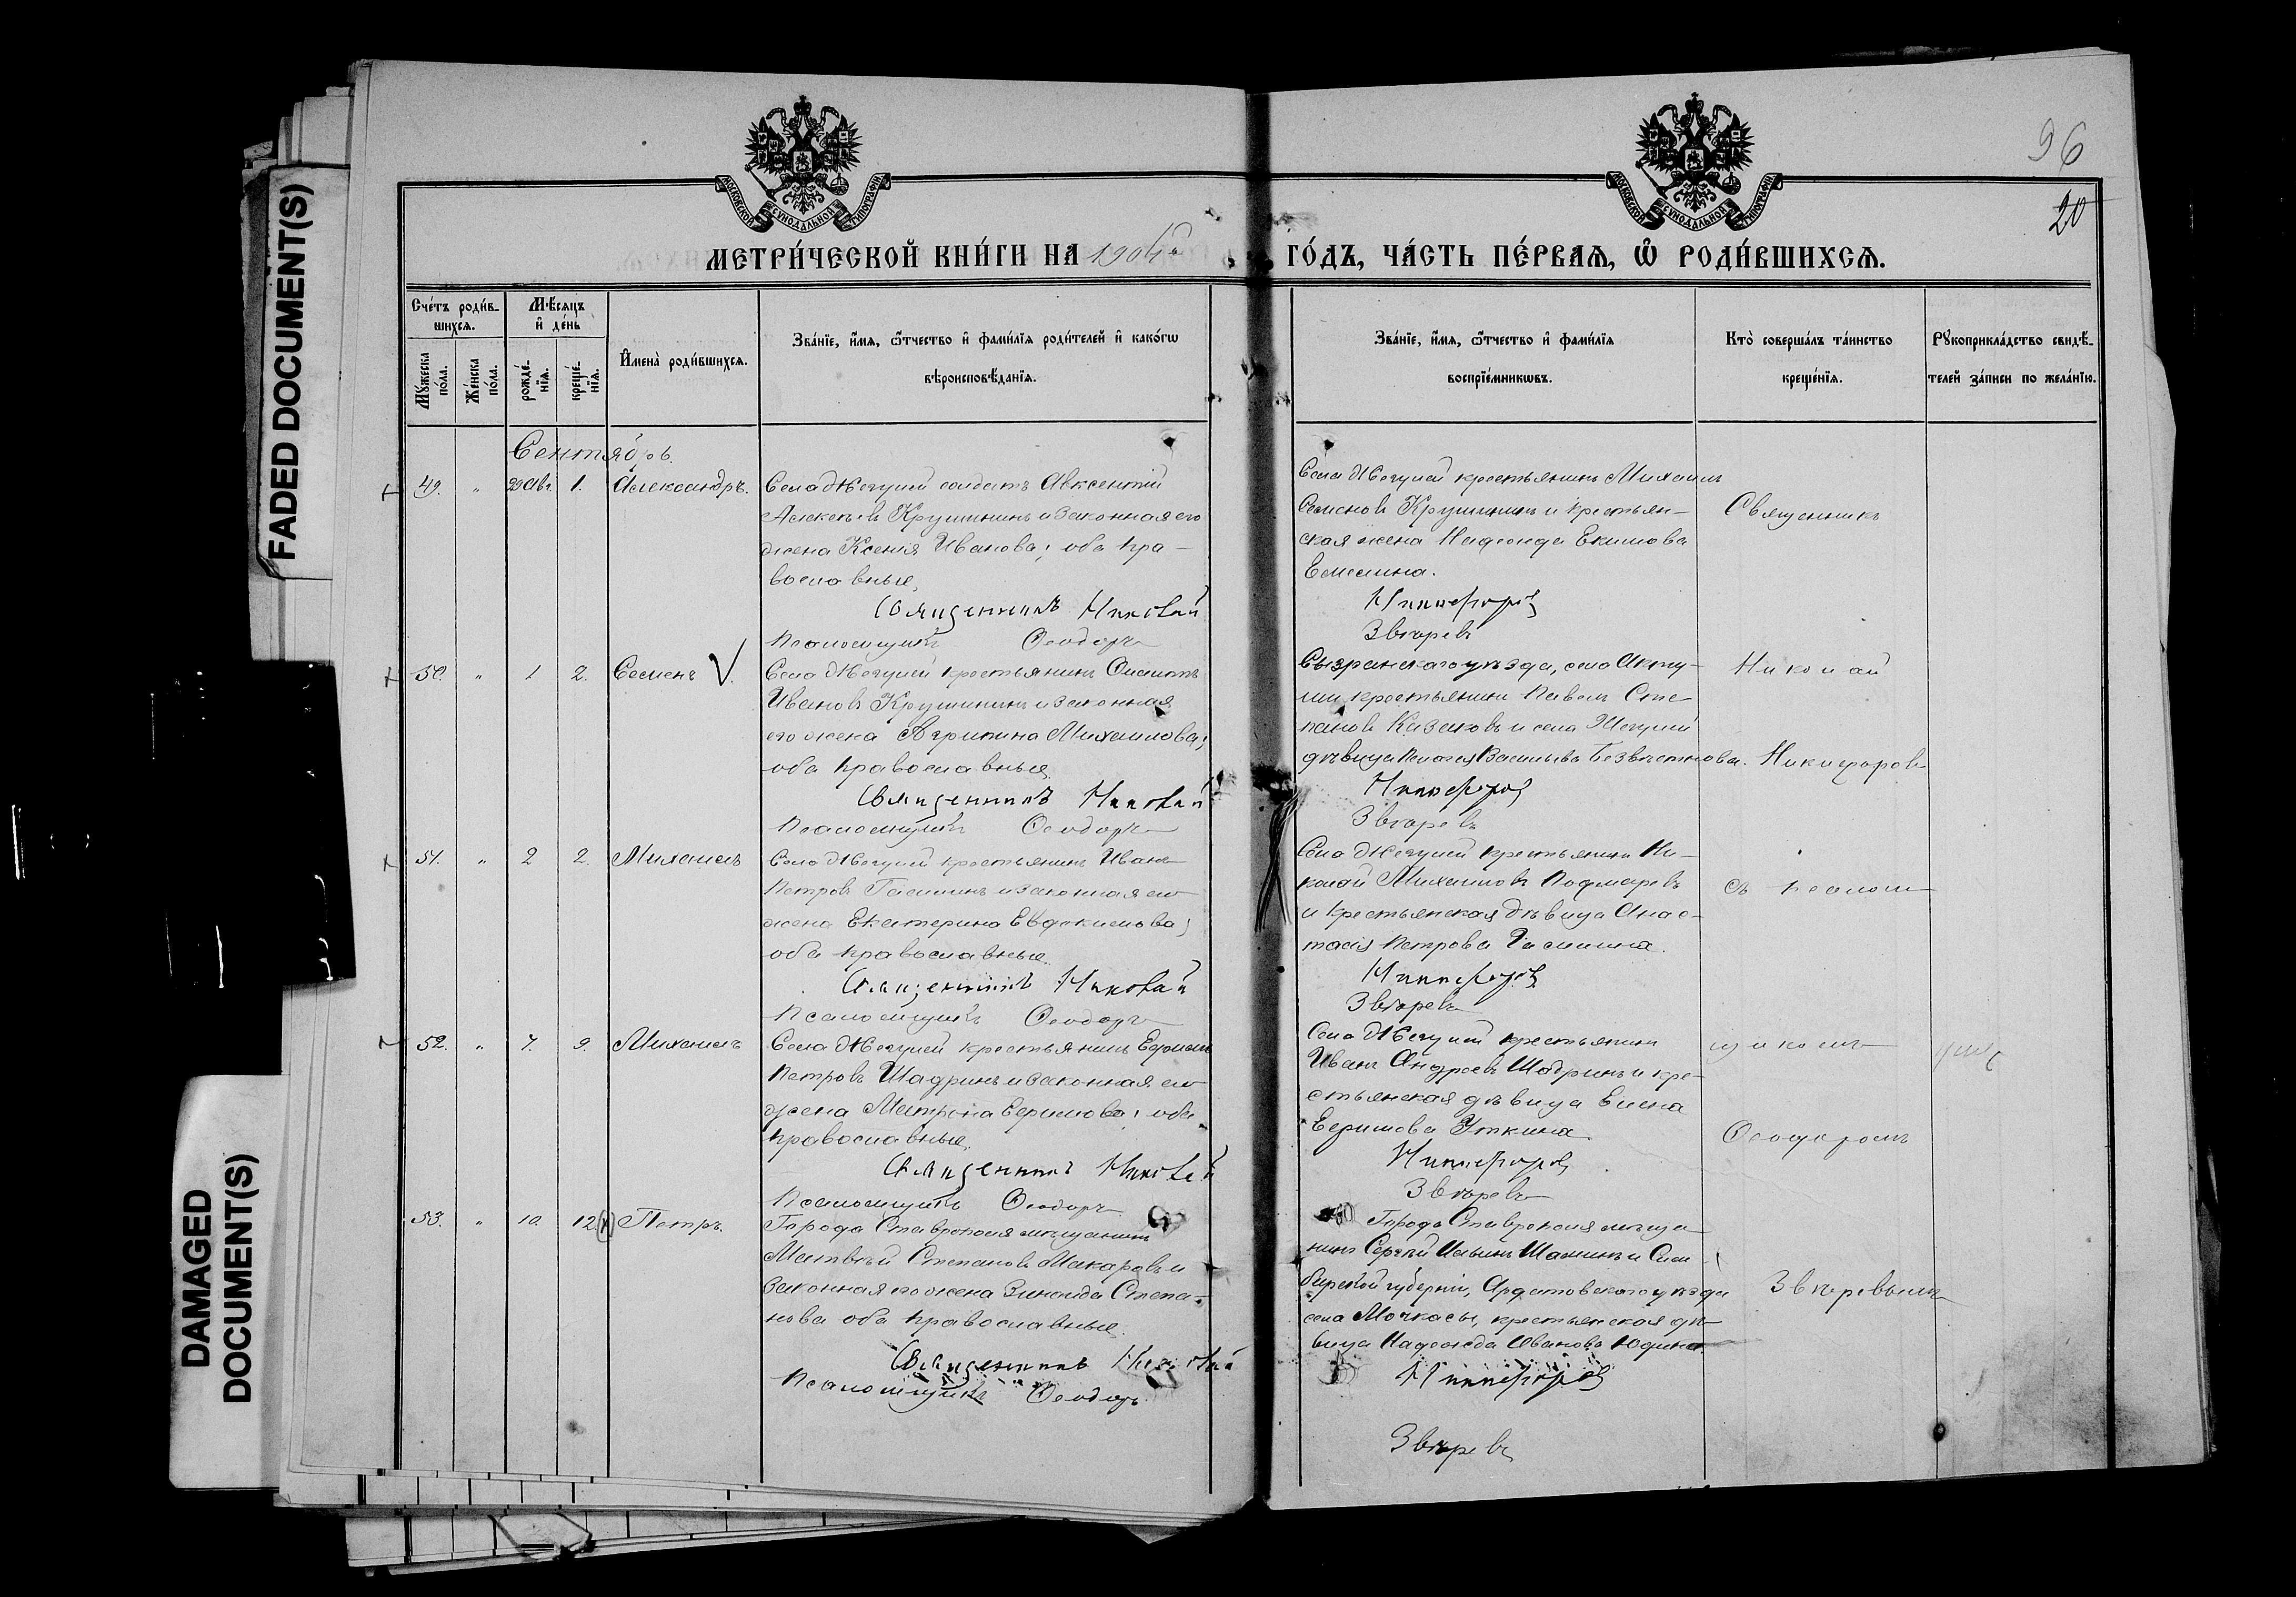 FADED DOCUMENT(S)
DAMAGED
DOCUMENT(S)
96
20
МОСКОВСКОЙ СѴНОДАЛЬНОЙ ТИПОГРАФІИ
МОСКОВСКОЙ СѴНОДАЛЬНОЙ ТИПОГРАФІИ
МЕТРИ́ЧЕСКОЙ КНИ́ГИ НА
ГО́ДЪ, ЧА́СТЬ ПЕ́РВАѦ, Ѽ РОДИ́ВШИХСѦ.
Сче́тъ роди́в-
шихсѧ.
Мꙋ́жеска
по́ла.
Же́нска
по́ла.
Мѣ́сѧцъ
и҆ де́нь
рожде́-
нїѧ.
креще́-
нїѧ.
И҆мена̀ роди́вшихсѧ.
Зва́нїе, и҆́мѧ, ѻ҆́тчество и҆ фами́лїѧ роди́телей и҆ како́гѡ
вѣроисповѣ́данїѧ.
Зва́нїе, и҆́мѧ, ѻ҆́тчество и҆ фами́лїѧ
воспрїе́мникѡвъ.
Кто̀ соверша́лъ та́инство
креще́нїѧ.
Рꙋкоприкла́дство свидѣ́-
телей за́писи по жела́нїю.
Сентябрь.
49. " 1. Александръ.
Села Жегулей солдатъ Авксентій
Алексѣевъ Крушининъ и законная его
жена Ксенія Иванова; оба пра-
вославные.
Священникъ Николай
Псаломщикъ Ѳеодоръ
Села Жегулей крестьянинъ Михаилъ
Семеновъ Крушининъ и крестьян-
ская жена Екимова
Емелина.
Никифоровъ
Звѣревъ
Священникъ
50. " 1 2. Семенъ
Села Жегулей крестьянинъ
Ивановъ Крушининъ и законная
его жена Агрипина Михаилова;
оба православные.
Священникъ Николай
Псаломщикъ Ѳеодоръ
Сызранскаго уѣзда, села Акту-
ши крестьянинъ Павелъ Сте-
пановъ Казаковъ и села Жегулей
дѣвица Пелагея Васильева Безвѣстнова.
Никифоровъ
Звѣревъ
Николай
Никифоровъ
51. " 2 2. Михаилъ
Села Жегулей крестьянинъ Иванъ
Петровъ и законная его
жена Екатерина Евдокимова;
оба православные.
Священникъ Николай
Псаломщикъ Ѳеодоръ
Села Жегулей крестьянинъ Ни-
колай Михаиловъ
и крестьянская дѣвица Анас-
тасія Петрова
Никифоровъ
Звѣревъ
съ псалом-
52. " 7. 9. Михаилъ
Села Жегулей крестьянинъ
Петровъ Шадринъ и законная его
жена Матрона Ефимова; оба
православные.
Священникъ Николай
Псаломщикъ Ѳеодоръ
Села Жегулей крестьянинъ
Иванъ Андреевъ Шадринъ и кре-
стьянская дѣвица Елена
Ефимова Уткина.
Никифоровъ
Звѣревъ
щикомъ
Ѳеодоромъ
53. " 10. 12. Петръ.
Города Ставрополя мѣщанинъ
Матвѣй Степановъ Макаровъ и
законная его жена Зинаида Степа-
нова оба православные.
Священникъ Николай
Псаломщикъ Ѳеодоръ
Города Ставрополя мѣща-
нинъ Сергѣй Ильинъ Шашинъ и Сим-
бирской губерніи, Ардатовскаго уѣзда
села Мочкасы, крестьянская дѣ-
вица Надежда Иванова Юдина.
Никифоровъ
Звѣревъ
Звѣревымъ